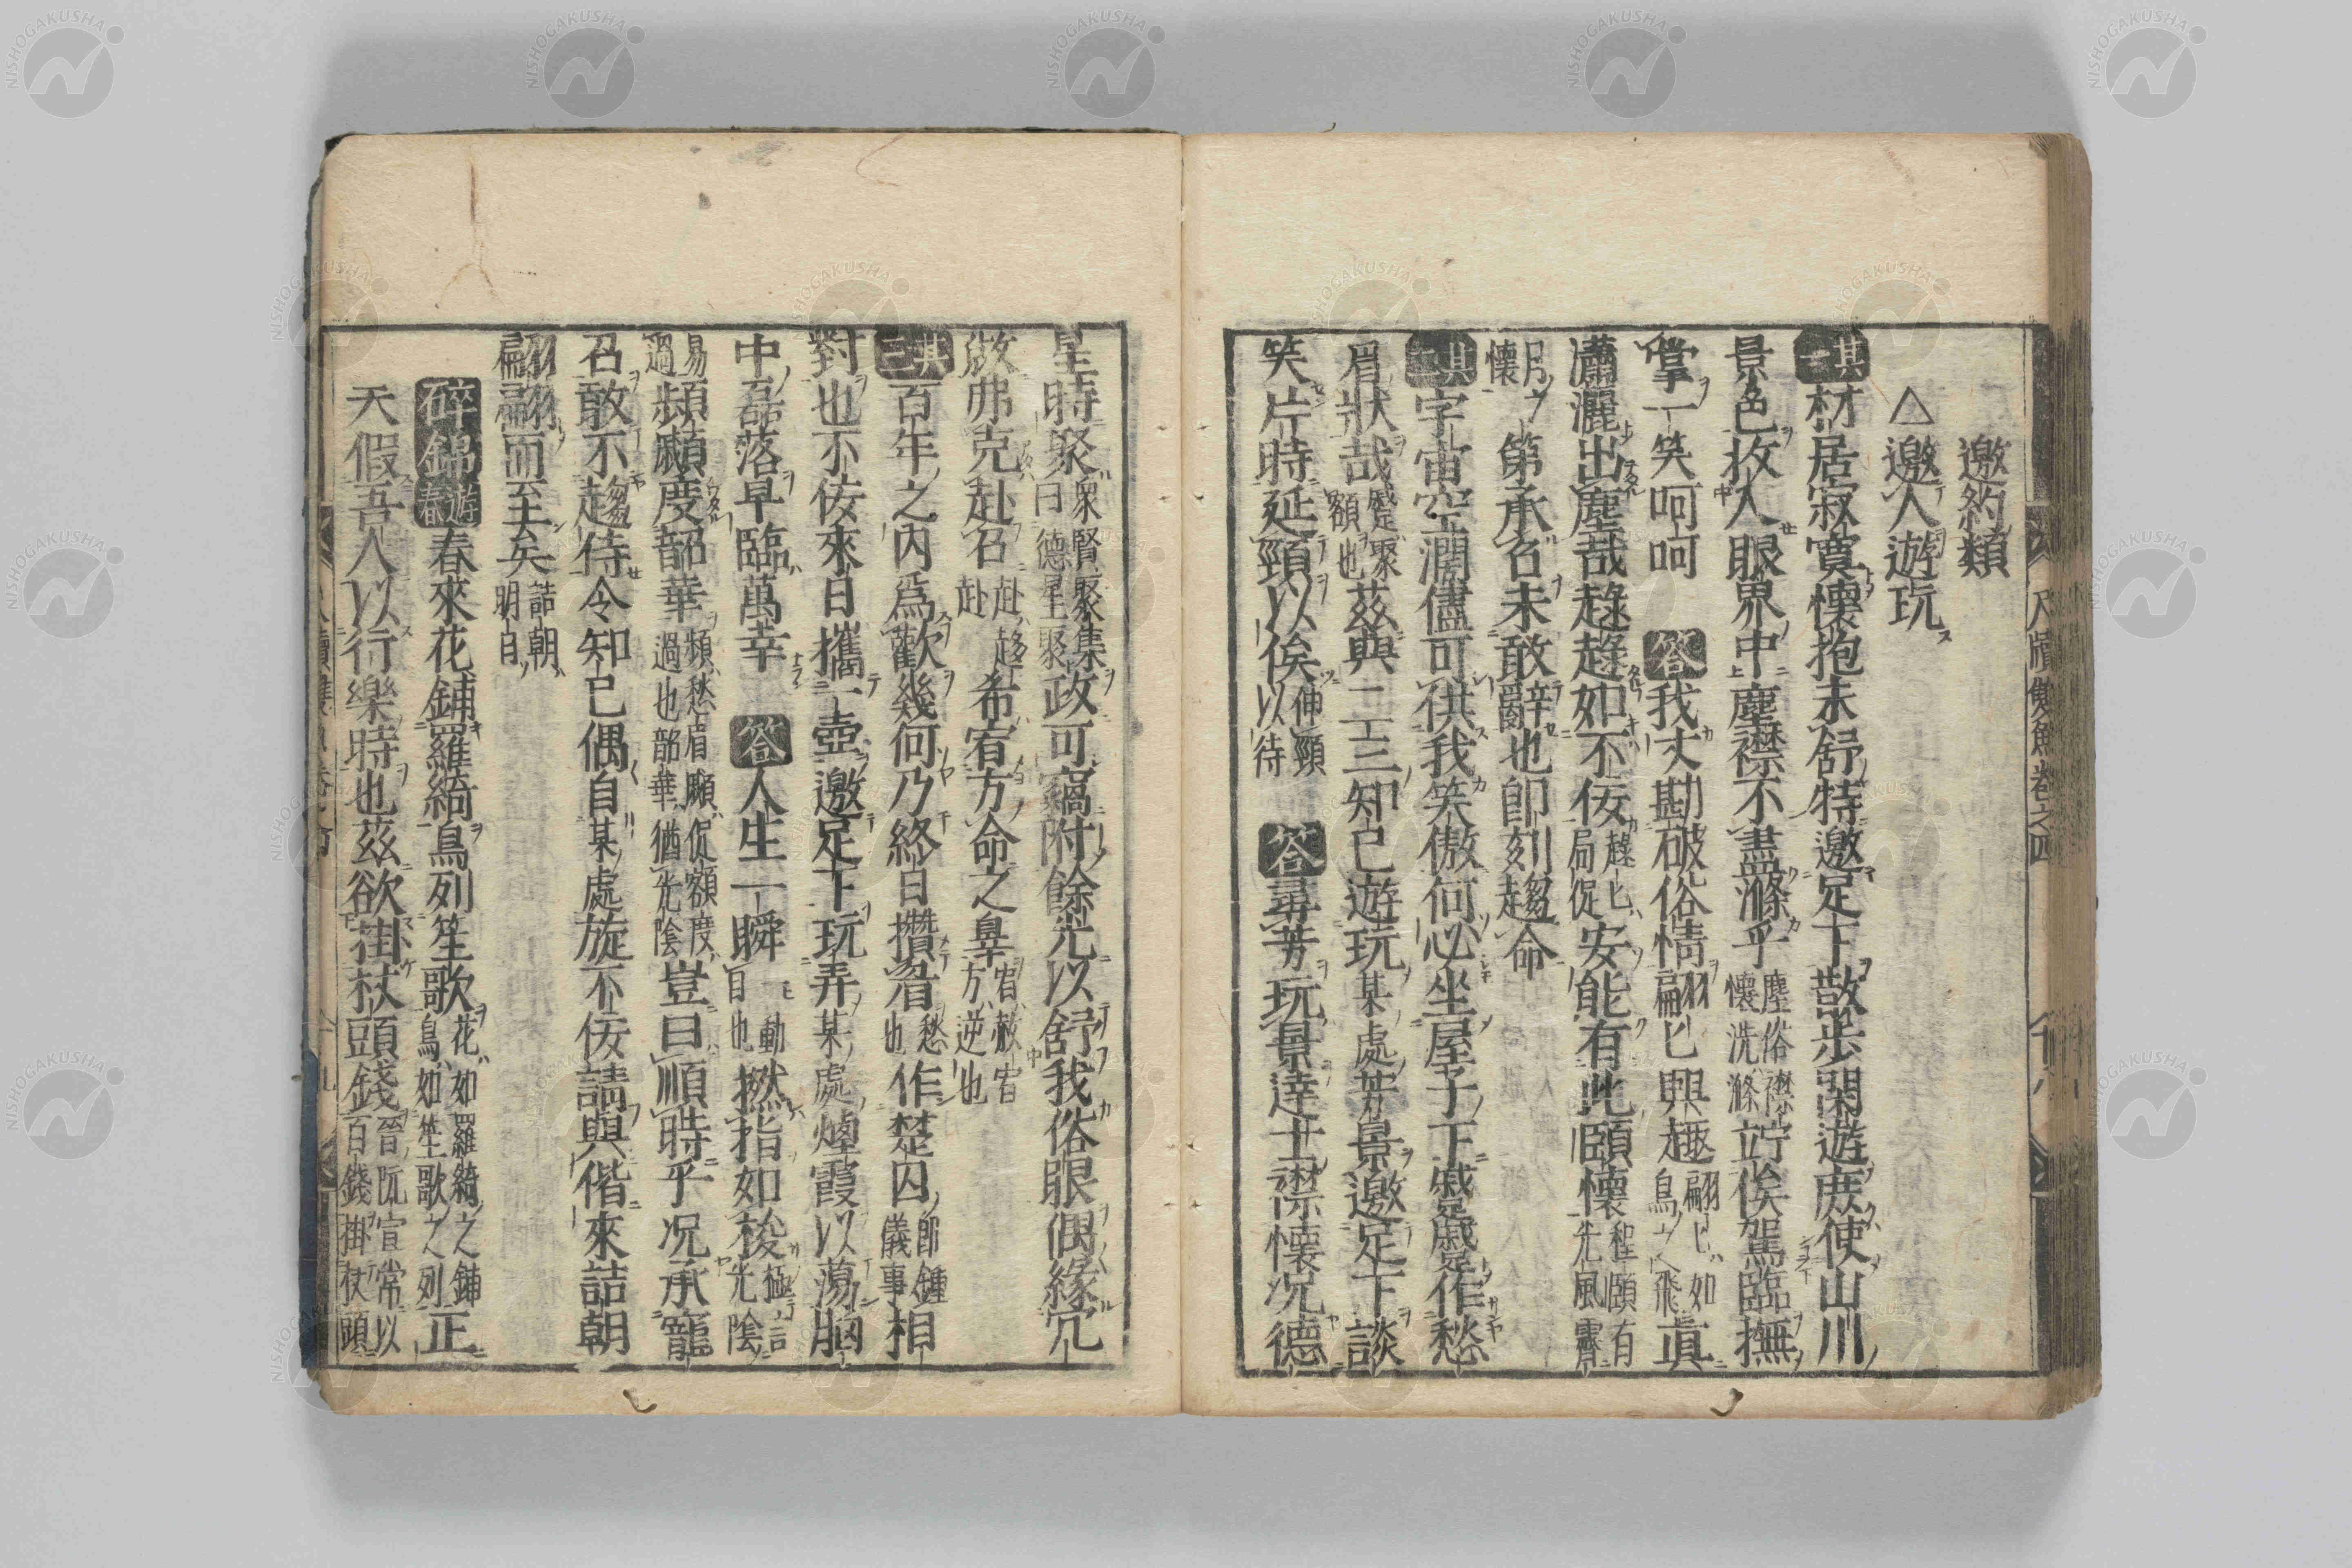 邀約類
△邀人遊玩
其一 材居寂寞懷抱未舒特邀足下散步閑遊庶使山川
景色扠人眼界中塵襟不盡滌乎塵俗襟懷洗滌竚俟駕臨撫
掌一笑呵呵 答 我丈勘破俗情翩匕興趣翩匕如鳥之飛眞
瀟灑出塵哉趢趢如不佞趢匕局促安能有此頤懷程頤有光風霽
月懷 第承召未敢辭也卽刻趨命
其二 宇宙空濶儘可供我笑傲何必坐屋子下蹙蹙作愁
眉狀哉蹙聚額也茲與二三知己遊玩某處芳景邀足下談
笑片時延頸以俟伸頸以待 答 尋芳玩景達士襟懷况德
星時聚衆賢聚集曰德星聚政可竊附餘光以舒我俗眼偶緣冗
故弗克赴召赴赴趍希宥方命之辠宥赦宥方逆也
其三 百年之內爲歡幾何乃終日攢眉愁也作楚囚卽鍾儀事相
對也不佞來日攜一壺邀足下玩弄某處煙霞以蕩胸
中磊落早臨萬幸 答 人生一瞬一動目也撚指如梭極言光陰
易過頻顣度韶華頻愁眉顣促額度過也韶華猶光陰豈曰順時乎况承寵
召敢不趨侍令知己偶自某處旋不佞請與偕來詰朝
翩翩而至矣詰朝明日
碎錦 遊春 春來花鋪羅綺鳥列笙歌花如羅綺之鋪鳥如笙歌之列正
天假吾人以行樂時也茲欲掛杖頭錢晉阮宣常以百錢掛杖頭
尺牘雙魚卷之四
十八
NISHOGAKUSHA